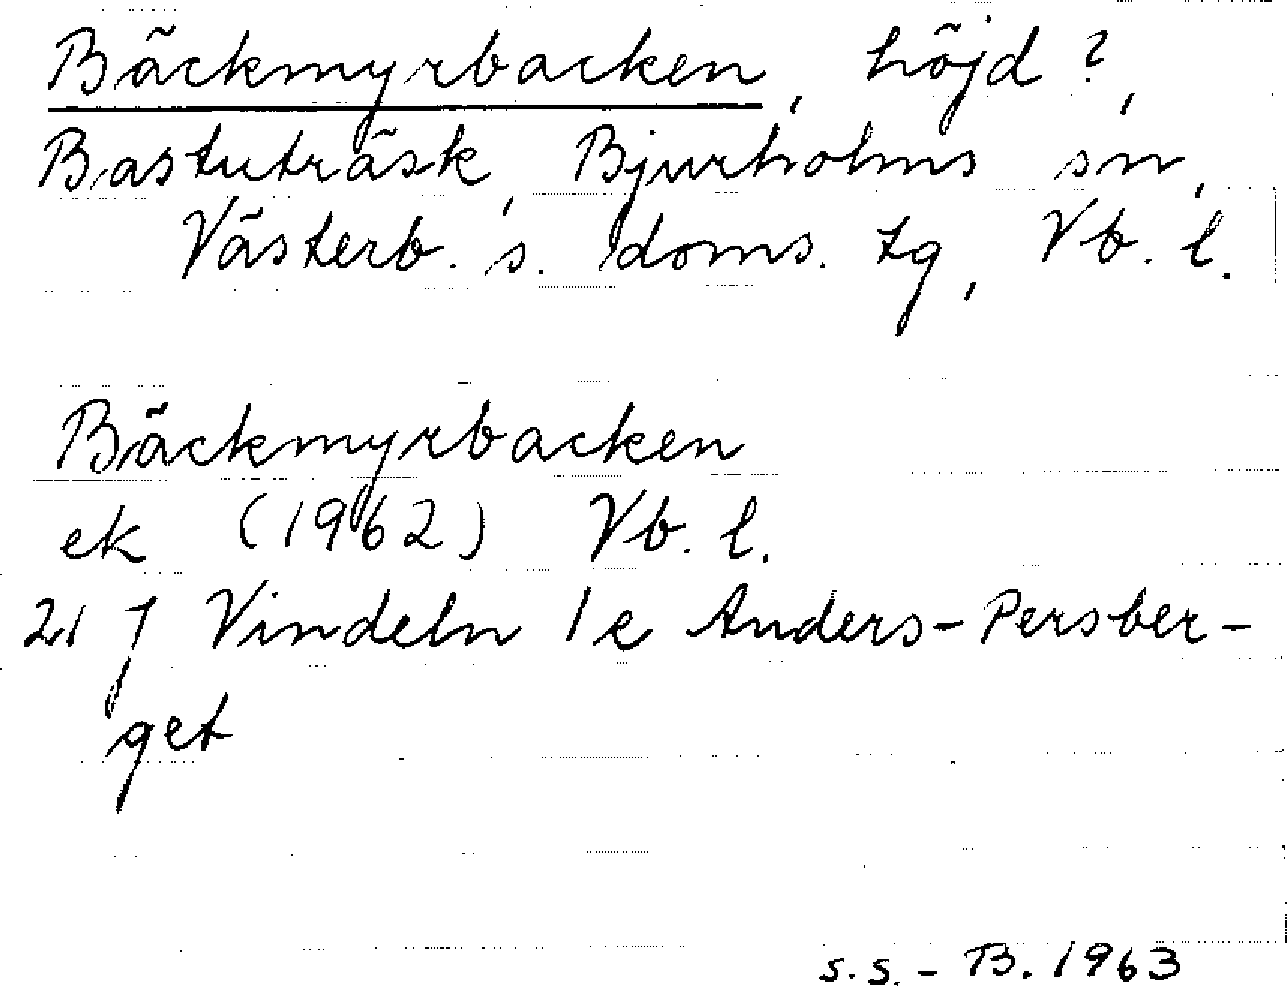 Bäckmyrbacken, höjd?,
Bastuträsk, Bjurholms sn,
Västerb. s. doms. tg, Vb. l.
Bäckmyrbacken
ek (1962) Vb. l.
21 J Vindeln 1 e Anders-Persber-
get
s.s. - B. 1963